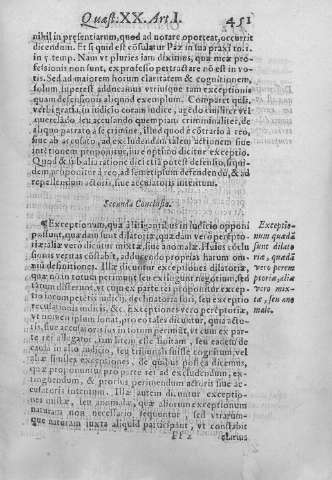 Quæst. XX. Art. I. 451
nihil in presentiarum, quod ad notare oporteat, occurrit
dicendum. Et si quid est
in 5. temp. Nam vt pluries iam diximus, quæ meæ pro-
fessionis non sunt, ex professo pertractare nõ est in vo-
tis. Sed ad maiorem horum claritatem & cognitionem,
solum superest adducamus vtriusque tam exceptionis
quam defensionis aliquod exemplum. Comparet quis,
verbi gratia, in iudicio coram iudice,
querelado seu accusando quempiam criminaliter, de
aliquo patrato à se crimine, illud quod è cõtrario à reo,
siue ab accusato, ad excludendam talem actionem siue
intentionem proponitur, iure optimo dicitur exceptio.
Quod & si ab alia ratione dici etiã potest defensio, siqui-
dem proponitur à reo, ad semetipsum defendendũ, & ad
repellentum actoris, siue accusatoris intentum.
Secunda Conclusio.
Exceptionum, quæ à litigantibus in iudicio opponi
possunt, quædam sunt dilatoriæ, quædam verò perẽpto-
riæ, aliæ verò dicũtur mixtæ, siue anomalæ. Huius cõclu
sionis veritas cõstabit, adducendo proprias harum om-
niũ definitiones. Illæ dicuntur exceptiones dilatoriæ,
quæ nõ in totum perimunt seu extinguunt negotium, sed
tantum differunt, vt cum ex parte rei proponitur excep-
tio incompetẽtis iudicij, declinatoria fori, seu exceptio
recusationis iudicis, &c. Exceptiones vero perẽptoriæ,
vt nomen ipsum sonat, pro eo tales dicuntur, quia acto-
ris, siue accusatoris ius in totum perimũt, vt cum ex par-
te rei allegatur, iam litem esse finitam, seu eadem de
causa in alio iudicio, seu tribunali fuisse cognitum, vel
aliæ similes exceptiones, & quibus positis dicimus,
quæ proponuntur pro parte rei ad excludendum, ex-
tinguendum, & prorsus perimendum actoris siue ac-
cusatoris intentum. Illæ autem dicuntur exceptio-
nes mixtæ, seu anomalæ, quæ aliorum exceptionum
naturam non necessario sequuntur, sed vtrarum-
que naturam iuxta aliquid participant, vt constabit
Ff 2 clarius
Exceptio-
num quædã
sunt dilato
riæ, quædã
vero perem
ptoriæ, aliæ
vero mix-
tæ, seu ano
malæ.